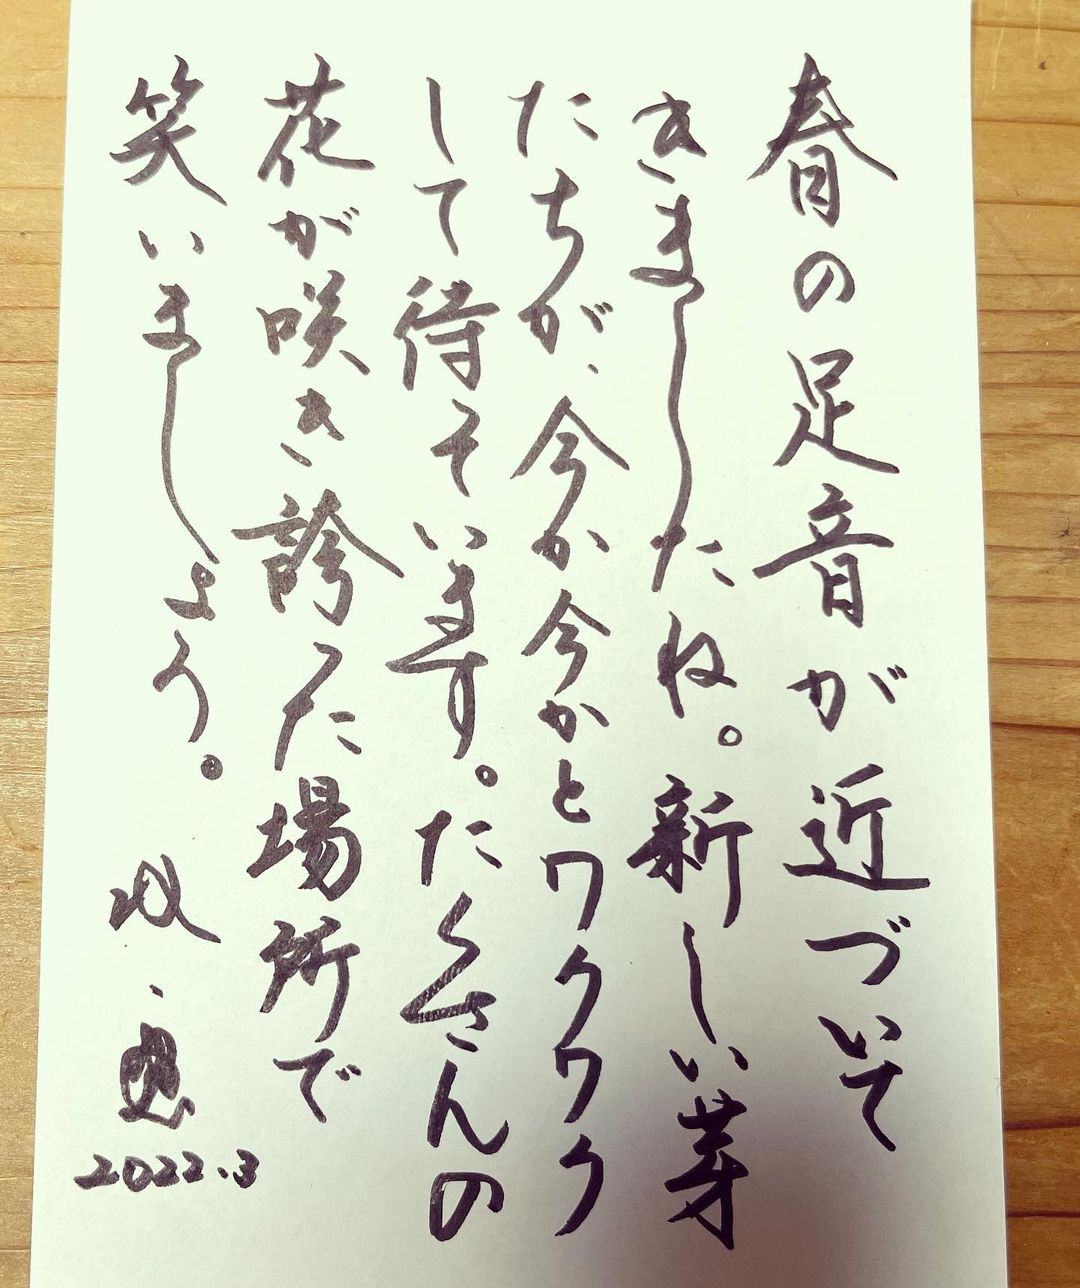 春の足音が近づいて
きましたね。新しい芽
たちが、今か今かとワクワク
して待っています。たくさんの
花が咲き誇った場所で
笑いましょう。
2022.3